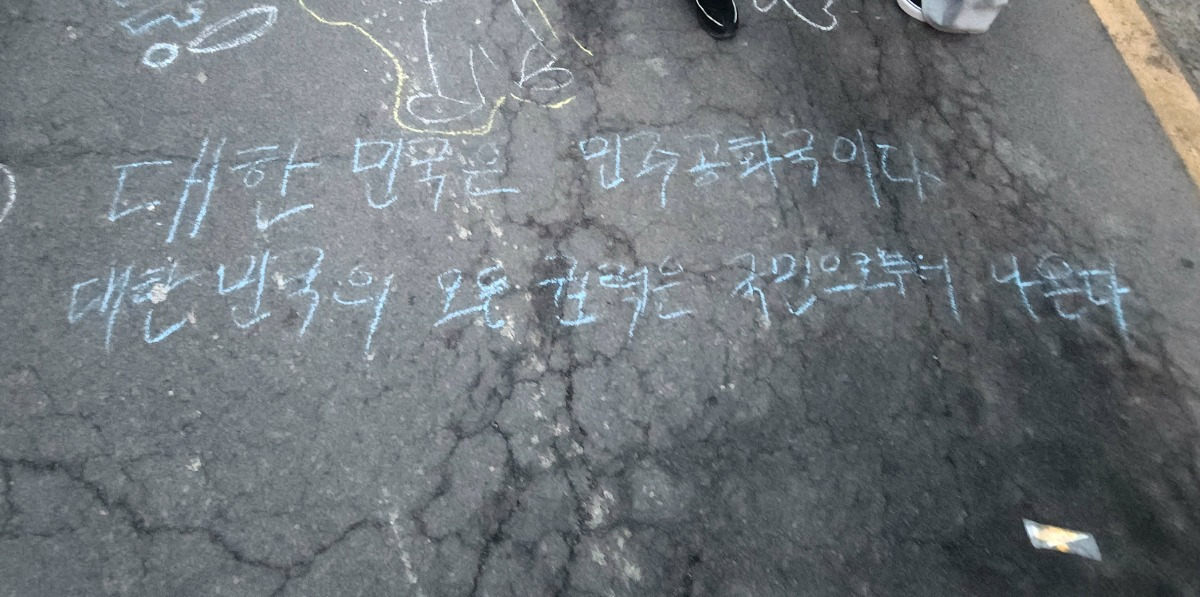 대한 민국은 민주공화국이다
대한 민국의 모든 권력은 국민으로부터 나온다